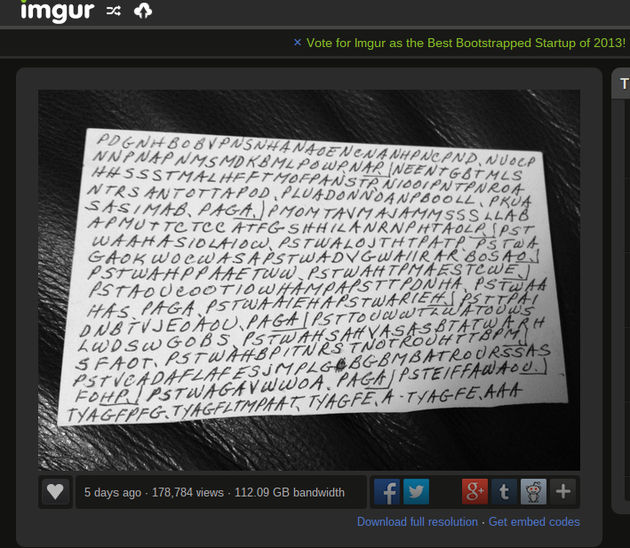 imgur
× Vote for Imgur as the Best Bootstrapped Startup of 2013!
T
PDGNHBOBVPNSNHANAOENCNANHPNCPND. NUOCP
NNPNAPNMSMDKBMLPOWPNAR | NEENTGBTMLS
HHSSSTMALHFFTMOFPANSTPNIOOIPNTPNROA
NTRSANTOTTAPOD. PLUADONNOANPBOOLL. PKUA
SASIMAB. PAGA. | PMOMTANMAJAMMSSSLLAB
APMUTTCTCC ATFGSHHILANRNPHTAOLP. | PST
WAAHASIOLAIOW. PSTWALOJTHTPATP. PSTWA
GAOKWOCWASAPSTWADVGWAIIRAR. BOSAO.|
PSTWAHPPAAETWW. PSTWAHTPMAESTCWE.|
PSTAOUCOOTIOWHAMPAPSTTPDNHA. PSTWAA
HAS. PAGA. PSTWAAIEHAPSTWARIEH.| PSTTPAI
DNBTVJEOAOU. PAGA | PSTTOUWWTLWATOUWS
LWDSWGOBS. PSTWAHSAHVASASBTATWARH
SFAOT. PSTWAHBPITNRSTNOTROUHTTBPM|
PSTVCADAFLAFESJMPLG BGBMBATROURSSAS
FOHP.| PSTWAGAVWWOA. PAGA| PSTEIFFAWAOU.|
TYAGFPFG. TYAGFLTMPAAT. TYAGFE. A - TYAGFE. AAA
5 days ago · 178,784 views · 112.09 GB bandwidth
Download full resolution · Get embed codes